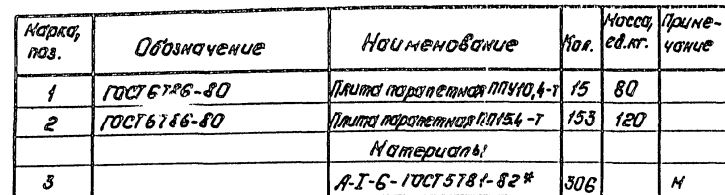 Марка, поз. Обозначение Наименование Кол. Масса, ед.кг. Приме-чание
1 ГОСТ 6786-80 Плита парапетная ППУ10,4-Т 15 80
2 ГОСТ 6786-80 Плита парапетная ПП15.4-Т 153 120
Материалы
3 А-I-6-ГОСТ 5781-82* 306 М